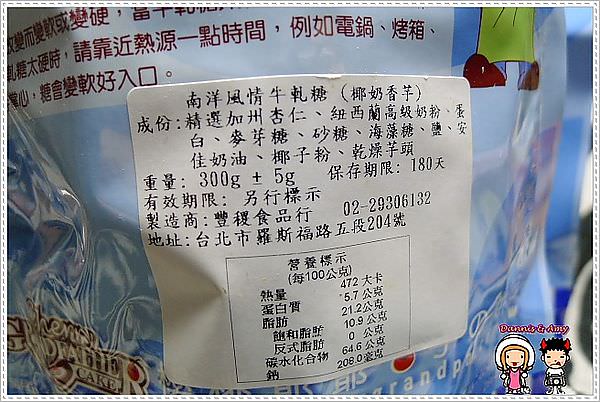 變而變軟或變硬，當牛軋糖
軋糖太硬時，請靠近熱源一點時間，例如電鍋、烤箱、
心，糖會變軟好入口。
南洋風情牛軋糖（椰奶香芋）
成份:精選加州杏仁、紐西蘭高級奶粉、蛋
白、麥芽糖、砂糖、海藻糖、鹽、安
佳奶油、椰子粉、乾燥芋頭
重量: 300g ± 5g 保存期限: 180天
有效期限: 另行標示
製造商:豐稷食品行 02-29306132
地址:台北市羅斯福路五段204號
營養標示
(每100公克)
熱量 472 大卡
蛋白質 5.7 公克
脂肪 21.2公克
飽和脂肪 10.9 公克
反式脂肪 0 公克
碳水化合物 64.6 公克
鈉 208.0毫克
grandp
Dannis & Amy